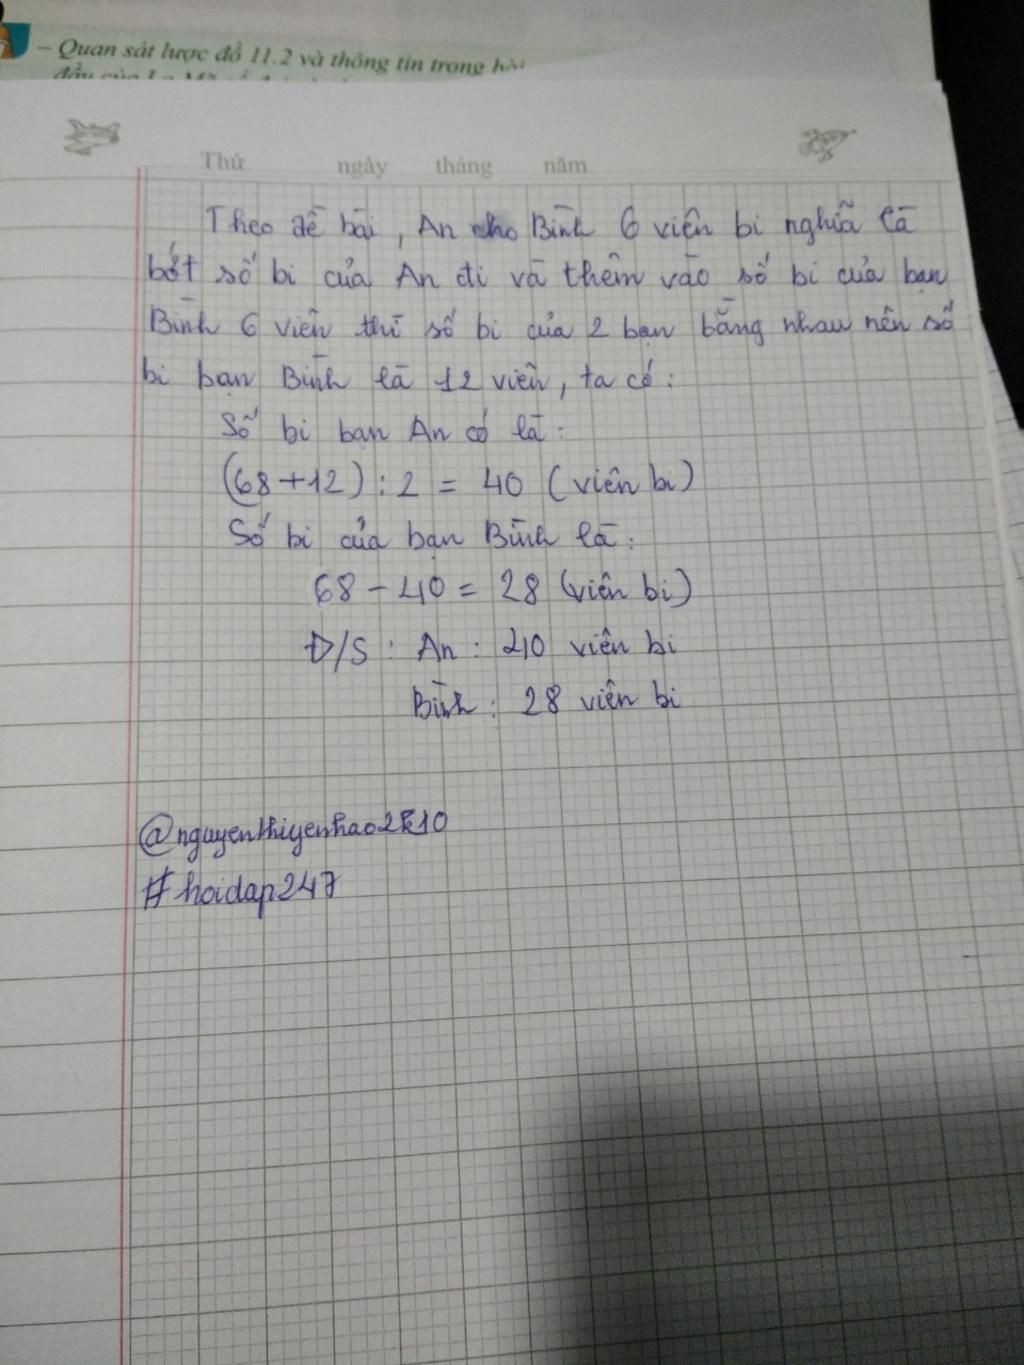 – Quan sát lược đồ 11.2 và thông tin trong bài
Thứ ngày tháng năm
Theo đề bài, An cho Bình 6 viên bi nghĩa là
bớt số bi của An đi và thêm vào số bi của bạn
Bình 6 viên thì số bi của 2 bạn bằng nhau nên số
bi bạn Bình là 12 viên, ta có:
Số bi bạn An có là:
(68+12) : 2 = 40 (viên bi)
Số bi của bạn Bình là:
68 - 40 = 28 (viên bi)
Đ/S : An : 40 viên bi
Bình : 28 viên bi
@nguyenthiyenhao2k10
#hoidap247